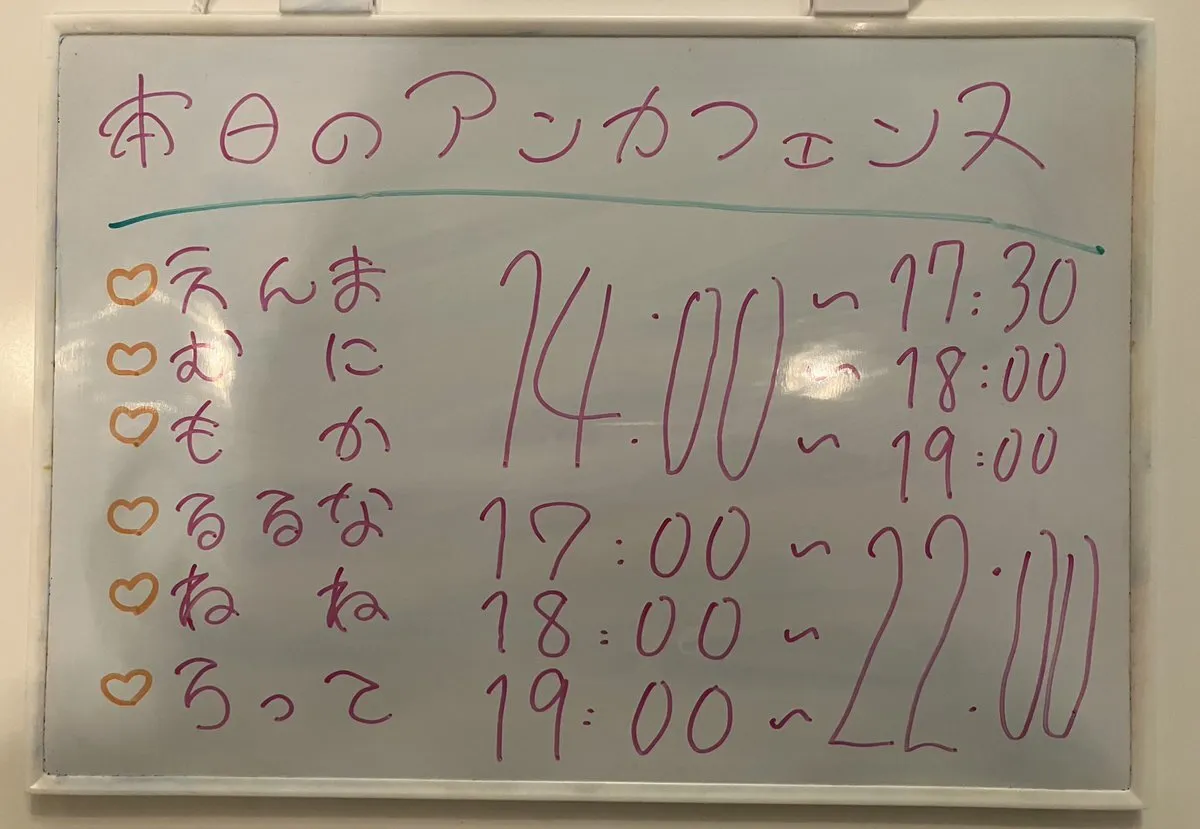 本日のアンカフェンヌ
♡えんま 14:00 〜 17:30
♡むに 〜 18:00
♡もか 〜 19:00
♡るるな 17:00 〜 22:00
♡ねね 18:00 〜
♡ろって 19:00 〜